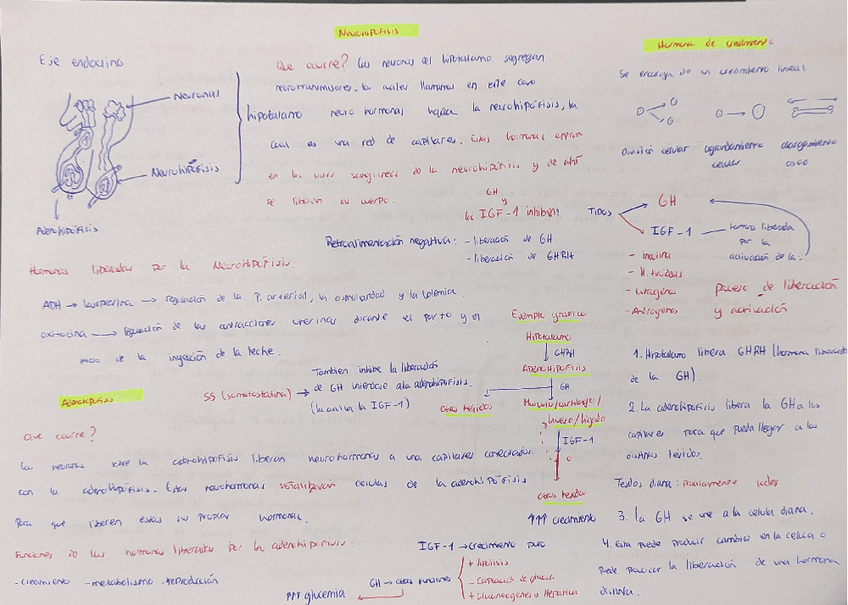 Neurohipófisis
Eje endocrino
Neuronas
hipotálamo
Neurohipófisis
Adenohipófisis
Que ocurre? Las neuronas del hipotálamo segregan
neurotransmisores, los cuales llamamos en este caso
neuro hormonas hacia la neurohipófisis, la
cual es una red de capilares. Estas hormonas entran
en los vasos sanguíneos de la neurohipófisis y de ahí
se liberan al cuerpo.
Hormonas liberadas por la Neurohipófisis.
ADH → vasopresina → regulación de la P. arterial, la osmolaridad y la volemia.
oxitocina → regulación de las contracciones uterinas durante el parto y el
inicio de la inyección de la leche.
GH
y
la IGF-1 inhiben:
Retroalimentación negativa: - liberación de GH
- liberación de GHRH
SS (somatostatina) →
También inhibe la liberación
de GH a la adenohipófisis.
(la activa la IGF-1)
Adenohipófisis
Que ocurre?
Las neuronas sobre la adenohipófisis liberan neurohormonas a unos capilares conectados
con la adenohipófisis. Estas neurohormonas señalizarán células de la adenohipófisis
para que liberen estas su propia hormona.
Funciones de las hormonas liberadas por la adenohipófisis:
- crecimiento - metabolismo - reproducción
Hormona de crecimiento
Se encarga de un crecimiento lineal
División celular
agrandamiento celular
alargamiento óseo
Tipos
GH
IGF-1
hormona liberada
por la
activación de la:
- insulina
- H. tiroideas
- Estrógenos
- Andrógenos
proceso de liberación
y activación
Ejemplo gráfico
Hipotálamo
GHRH
Adenohipófisis
GH
Otros tejidos
Músculo/cartílago/
hueso/hígado
IGF-1
otros tejidos
↑↑↑ crecimiento
1. Hipotálamo libera GHRH (hormona liberadora
de la GH)
2. La adenohipófisis libera la GH a los
capilares para que pueda llegar a los
distintos tejidos.
Tejidos diana: prácticamente todos
3. La GH se une a la célula diana.
4. Esta puede producir cambios en la célula o
puede provocar la liberación de una hormona
distinta.
IGF-1 → Crecimiento puro
GH → otras funciones
+ lipólisis
- Captación de glucosa
+ Gluconeogénesis Hepática
↑↑↑ glucemia